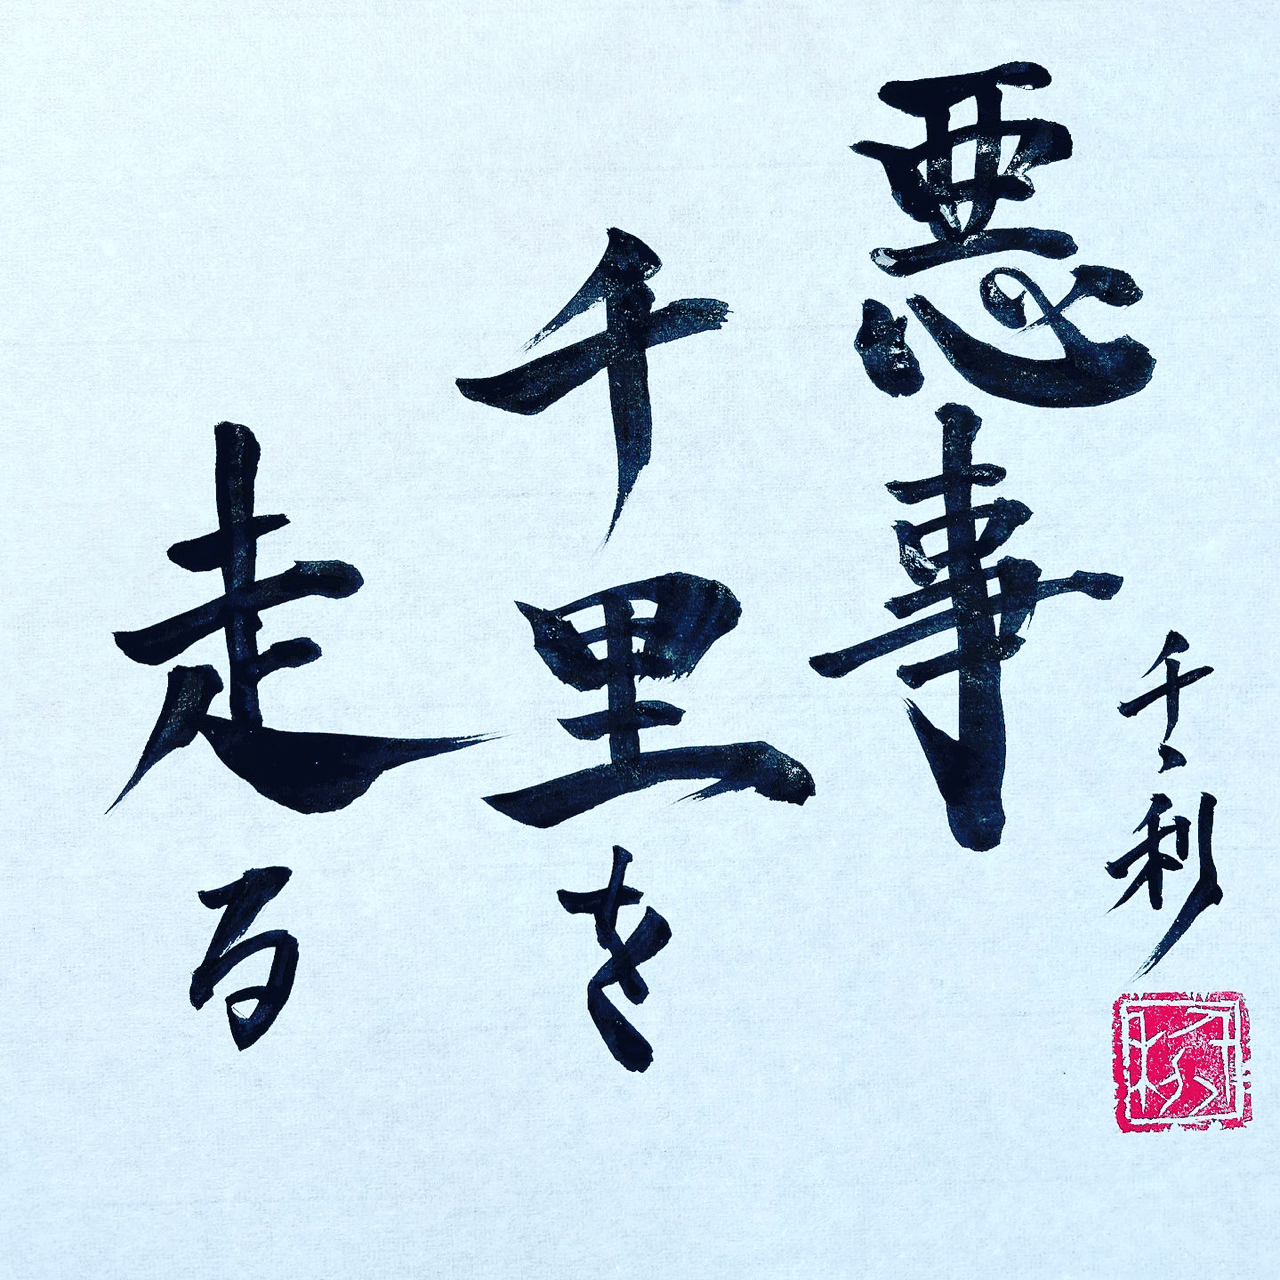 悪事
千里を
走る
千利